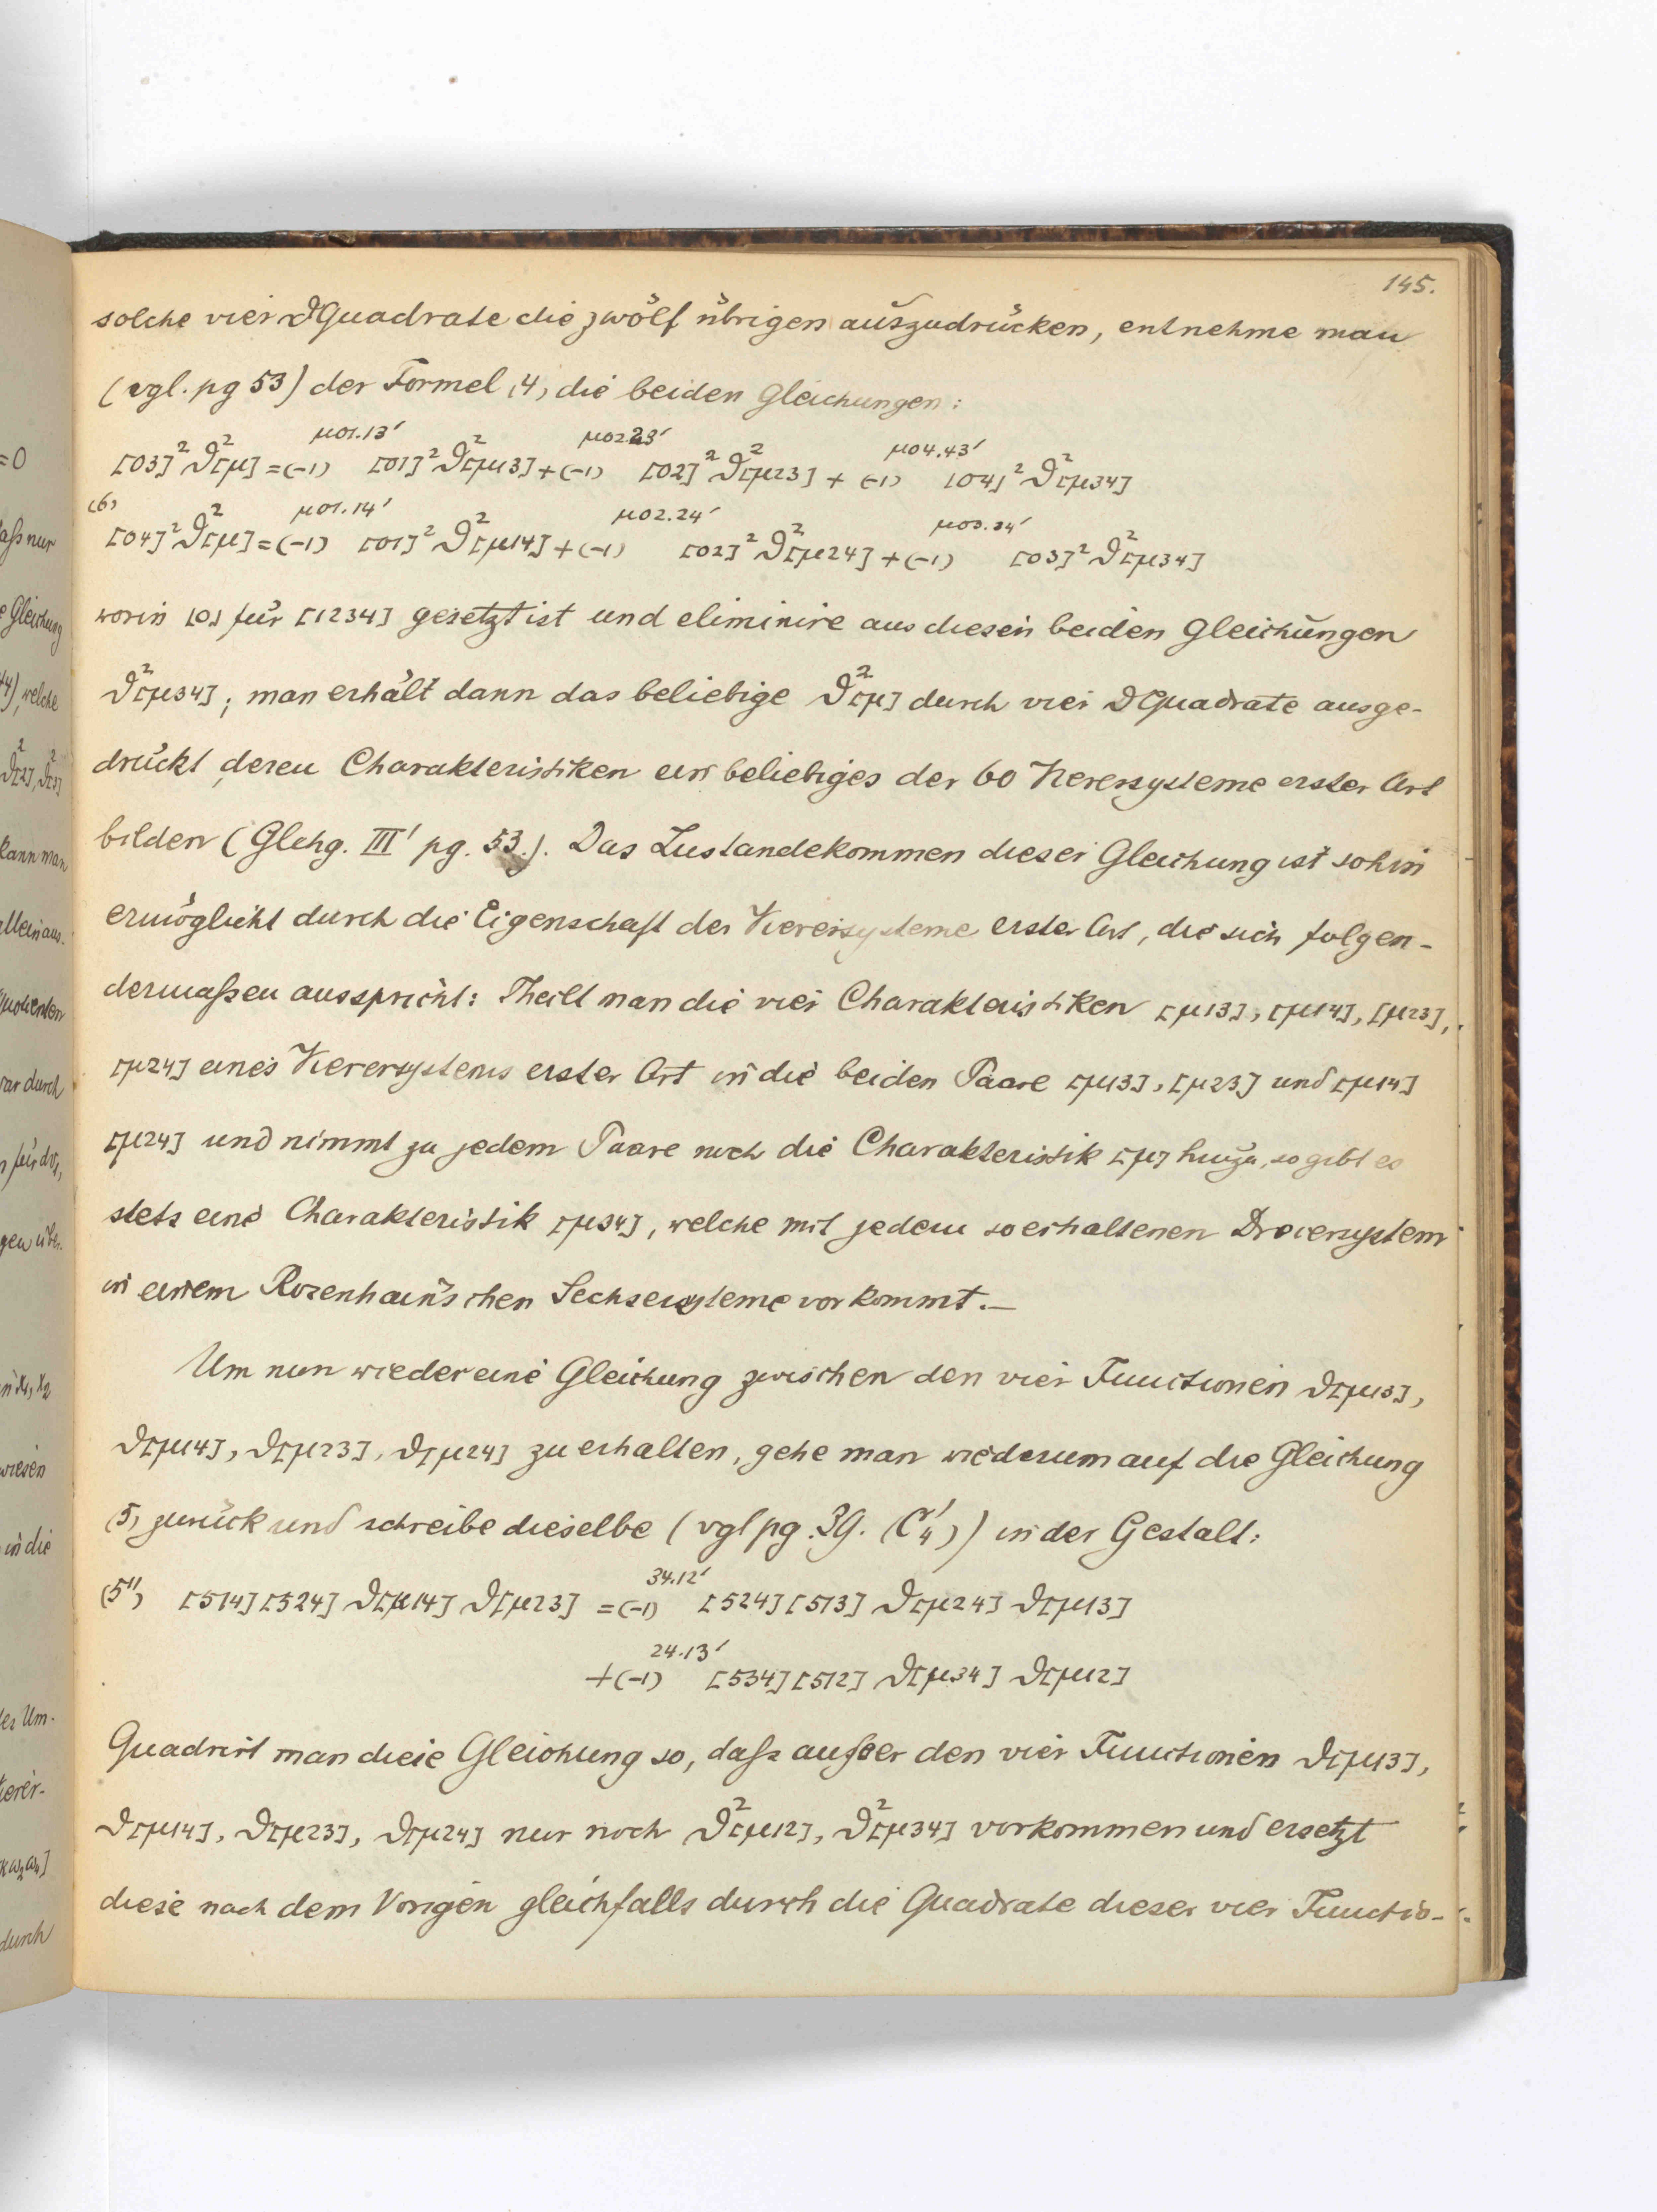 145.
solche vier ϑQuadrate die zwölf übrigen auszudrücken, entnehme man
(vgl. pg 53) der Formel (4) die beiden Gleichungen:
[03]² ϑ²[μ] = (-1)^{μ01.13'} [01]² ϑ²[μ13] + (-1)^{μ02.23'} [02]² ϑ²[μ23] + (-1)^{μ04.43'} [04]² ϑ²[μ34]
(6)
[04]² ϑ²[μ] = (-1)^{μ01.14'} [01]² ϑ²[μ14] + (-1)^{μ02.24'} [02]² ϑ²[μ24] + (-1)^{μ03.34'} [03]² ϑ²[μ34]
worin [0] für [1234] gesetzt ist und eliminire aus diesen beiden Gleichungen
ϑ²[μ34]; man erhält dann das beliebige ϑ²[μ] durch vier ϑQuadrate ausge-
drückt, deren Charakteristiken ein beliebiges der 60 Vierersysteme erster Art
bilden (Glchg. III' pg. 53.). Das Zustandekommen dieser Gleichung ist sohin
ermöglicht durch die Eigenschaft der Vierersysteme erster Art, die sich folgen-
dermaßen ausspricht: Theilt man die vier Charakteristiken [μ13], [μ14], [μ23],
[μ24] eines Vierersystems erster Art in die beiden Paare [μ13], [μ23] und [μ14]
[μ24] und nimmt zu jedem Paare noch die Charakteristik [μ] hinzu, so gibt es
stets eine Charakteristik [μ34], welche mit jedem so erhaltenen Dreiersystem
in einem Rosenhain'schen Sechsersysteme vorkommt.—
Um nun wieder eine Gleichung zwischen den vier Functionen ϑ[μ13],
ϑ[μ14], ϑ[μ23], ϑ[μ24] zu erhalten, gehe man wiederum auf die Gleichung
(5) zurück und schreibe dieselbe (vgl pg. 39. (C₄')) in der Gestalt:
(5'') [514][524] ϑ[μ14] ϑ[μ23] = (-1)^{34.12'} [524][513] ϑ[μ24] ϑ[μ13]
+ (-1)^{24.13'} [534][512] ϑ[μ34] ϑ[μ12]
Quadrirt man diese Gleichung so, daß außer den vier Functionen ϑ[μ13],
ϑ[μ14], ϑ[μ23], ϑ[μ24] nur noch ϑ²[μ12], ϑ²[μ34] vorkommen und ersetzt
diese nach dem Vorigen gleichfalls durch die Quadrate dieser vier Functio-
=0
aß nur
e Gleichung
44), welche
ϑ²[2], ϑ²[3]
kann man
allein aus-
Quotienten
var durch
gen über-
in x₁, x₂
wiesen
in die
der Um-
durch